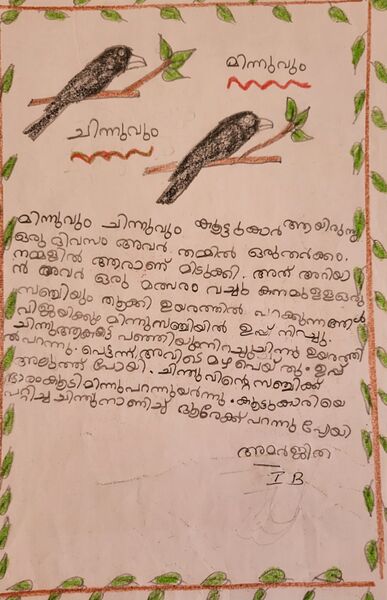 മിന്നുവും
ചിന്നുവും
മിന്നുവും ചിന്നുവും കൂട്ടുകാർ ആയിരുന്നു
ഒരു ദിവസം അവർ തമ്മിൽ ഒരുതർക്കം.
നമ്മളിൽ ആരാണ് മിടുക്കി. അത് അറിയാ
ൻ അവർ ഒരു മത്സരം വച്ചു കനമുള്ളഒരു
സഞ്ചിയും തൂക്കി ഉയരത്തിൽ പറക്കുന്നആൾ
വിജയിക്കും മിന്നുസഞ്ചിയിൽ ഉപ്പ് നിറച്ചു.
ചിന്നുആകട്ടെ പഞ്ഞിയുംനിറച്ചുചിന്നു ഉയരത്തി
ൽപറന്നു. പെട്ടന്ന് അവിടെ മഴപെയ്തു. ഉപ്പ്
അലുത്ത് പോയി. ചിന്നുവിന്റെസഞ്ചിക്ക്
ഭാരംകൂടി മിന്നുപറന്നുയർന്നു. കൂട്ടുകാരിയെ
പറ്റിച്ച ചിന്നുനാണിച്ച് ദൂരേക്ക് പറന്നു പോയി
അമർജിത
I B